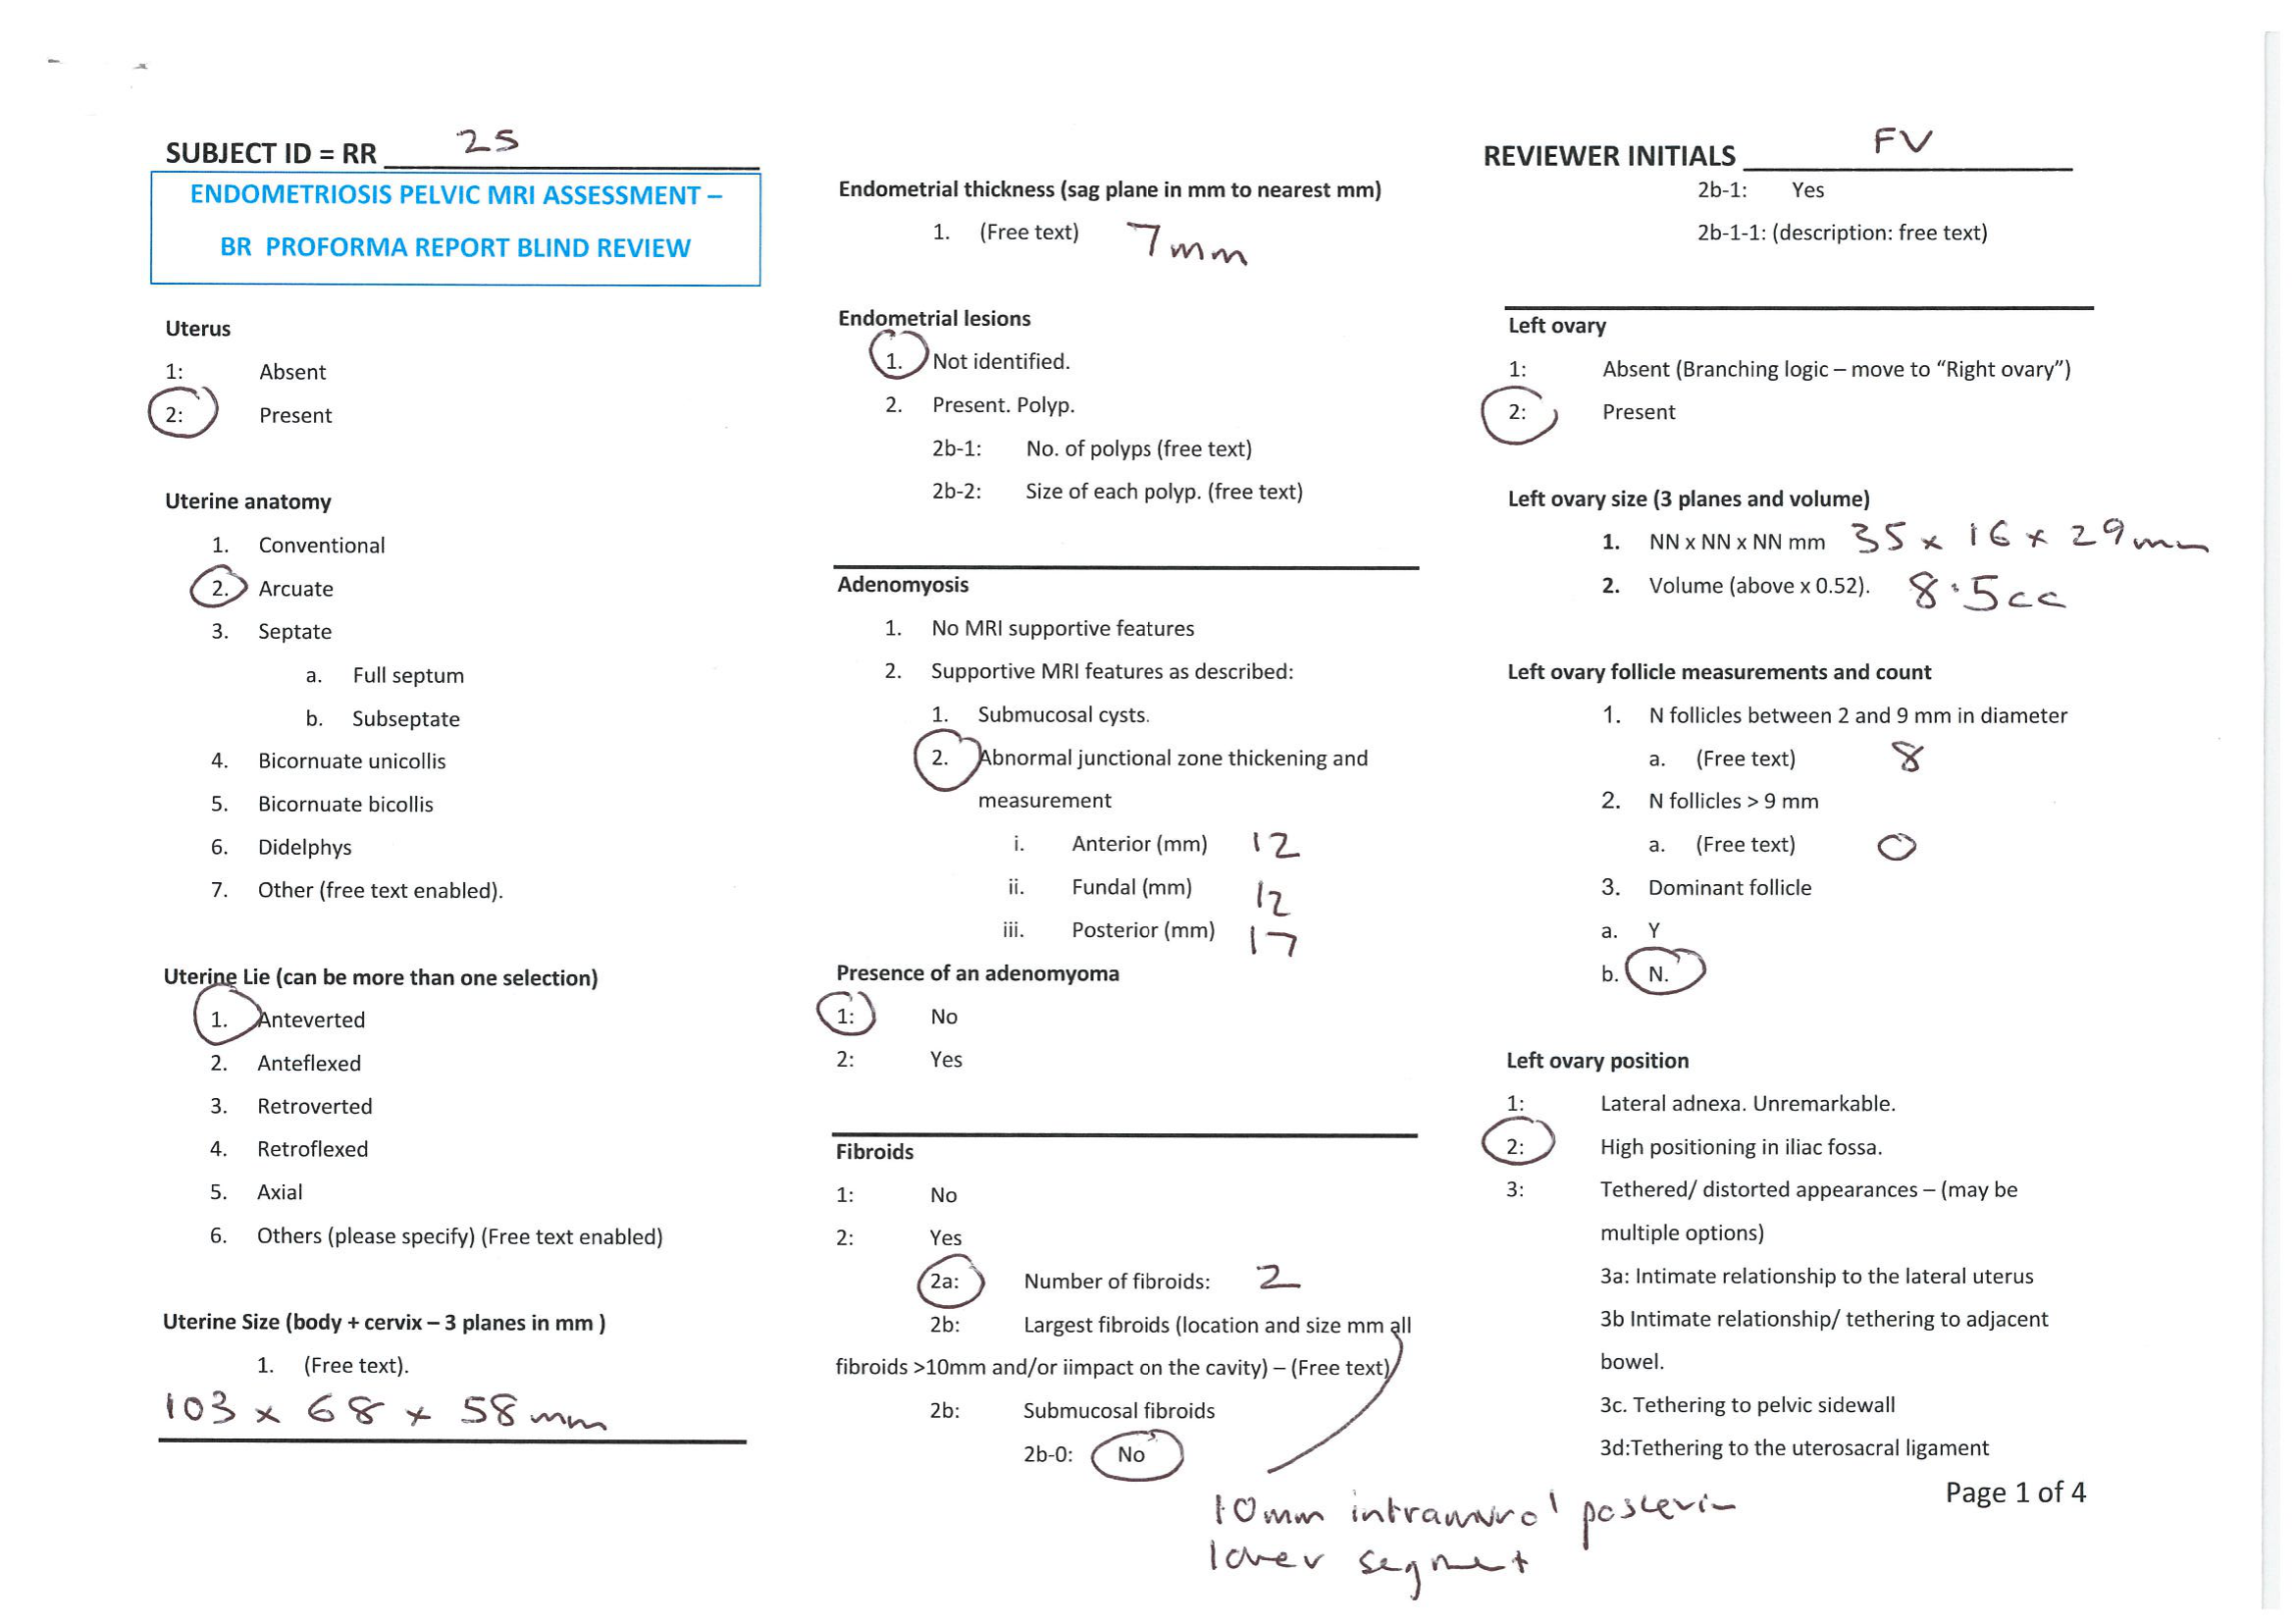 SUBJECT ID = RR 25
REVIEWER INITIALS FV
ENDOMETRIOSIS PELVIC MRI ASSESSMENT –
BR PROFORMA REPORT BLIND REVIEW
Uterus
1: Absent
2: Present
Uterine anatomy
1. Conventional
2. Arcuate
3. Septate
a. Full septum
b. Subseptate
4. Bicornuate unicollis
5. Bicornuate bicollis
6. Didelphys
7. Other (free text enabled).
Uterine Lie (can be more than one selection)
1. Anteverted
2. Anteflexed
3. Retroverted
4. Retroflexed
5. Axial
6. Others (please specify) (Free text enabled)
Uterine Size (body + cervix – 3 planes in mm )
1. (Free text).
103 x 68 x 58 mm
Endometrial thickness (sag plane in mm to nearest mm)
1. (Free text) 7mm
Endometrial lesions
1. Not identified.
2. Present. Polyp.
2b-1: No. of polyps (free text)
2b-2: Size of each polyp. (free text)
Adenomyosis
1. No MRI supportive features
2. Supportive MRI features as described:
1. Submucosal cysts.
2. Abnormal junctional zone thickening and
measurement
i. Anterior (mm) 12
ii. Fundal (mm) 12
iii. Posterior (mm) 17
Presence of an adenomyoma
1: No
2: Yes
Fibroids
1: No
2: Yes
2a: Number of fibroids: 2
2b: Largest fibroids (location and size mm all
fibroids >10mm and/or iimpact on the cavity) – (Free text)
2b: Submucosal fibroids
2b-0: No
10mm intramural posterior
lower segment
2b-1: Yes
2b-1-1: (description: free text)
Left ovary
1: Absent (Branching logic – move to “Right ovary”)
2: Present
Left ovary size (3 planes and volume)
1. NN x NN x NN mm 35 x 16 x 29mm
2. Volume (above x 0.52). 8.5cc
Left ovary follicle measurements and count
1. N follicles between 2 and 9 mm in diameter
a. (Free text) 8
2. N follicles > 9 mm
a. (Free text) 0
3. Dominant follicle
a. Y
b. N.
Left ovary position
1: Lateral adnexa. Unremarkable.
2: High positioning in iliac fossa.
3: Tethered/ distorted appearances – (may be
multiple options)
3a: Intimate relationship to the lateral uterus
3b Intimate relationship/ tethering to adjacent
bowel.
3c. Tethering to pelvic sidewall
3d:Tethering to the uterosacral ligament
Page 1 of 4